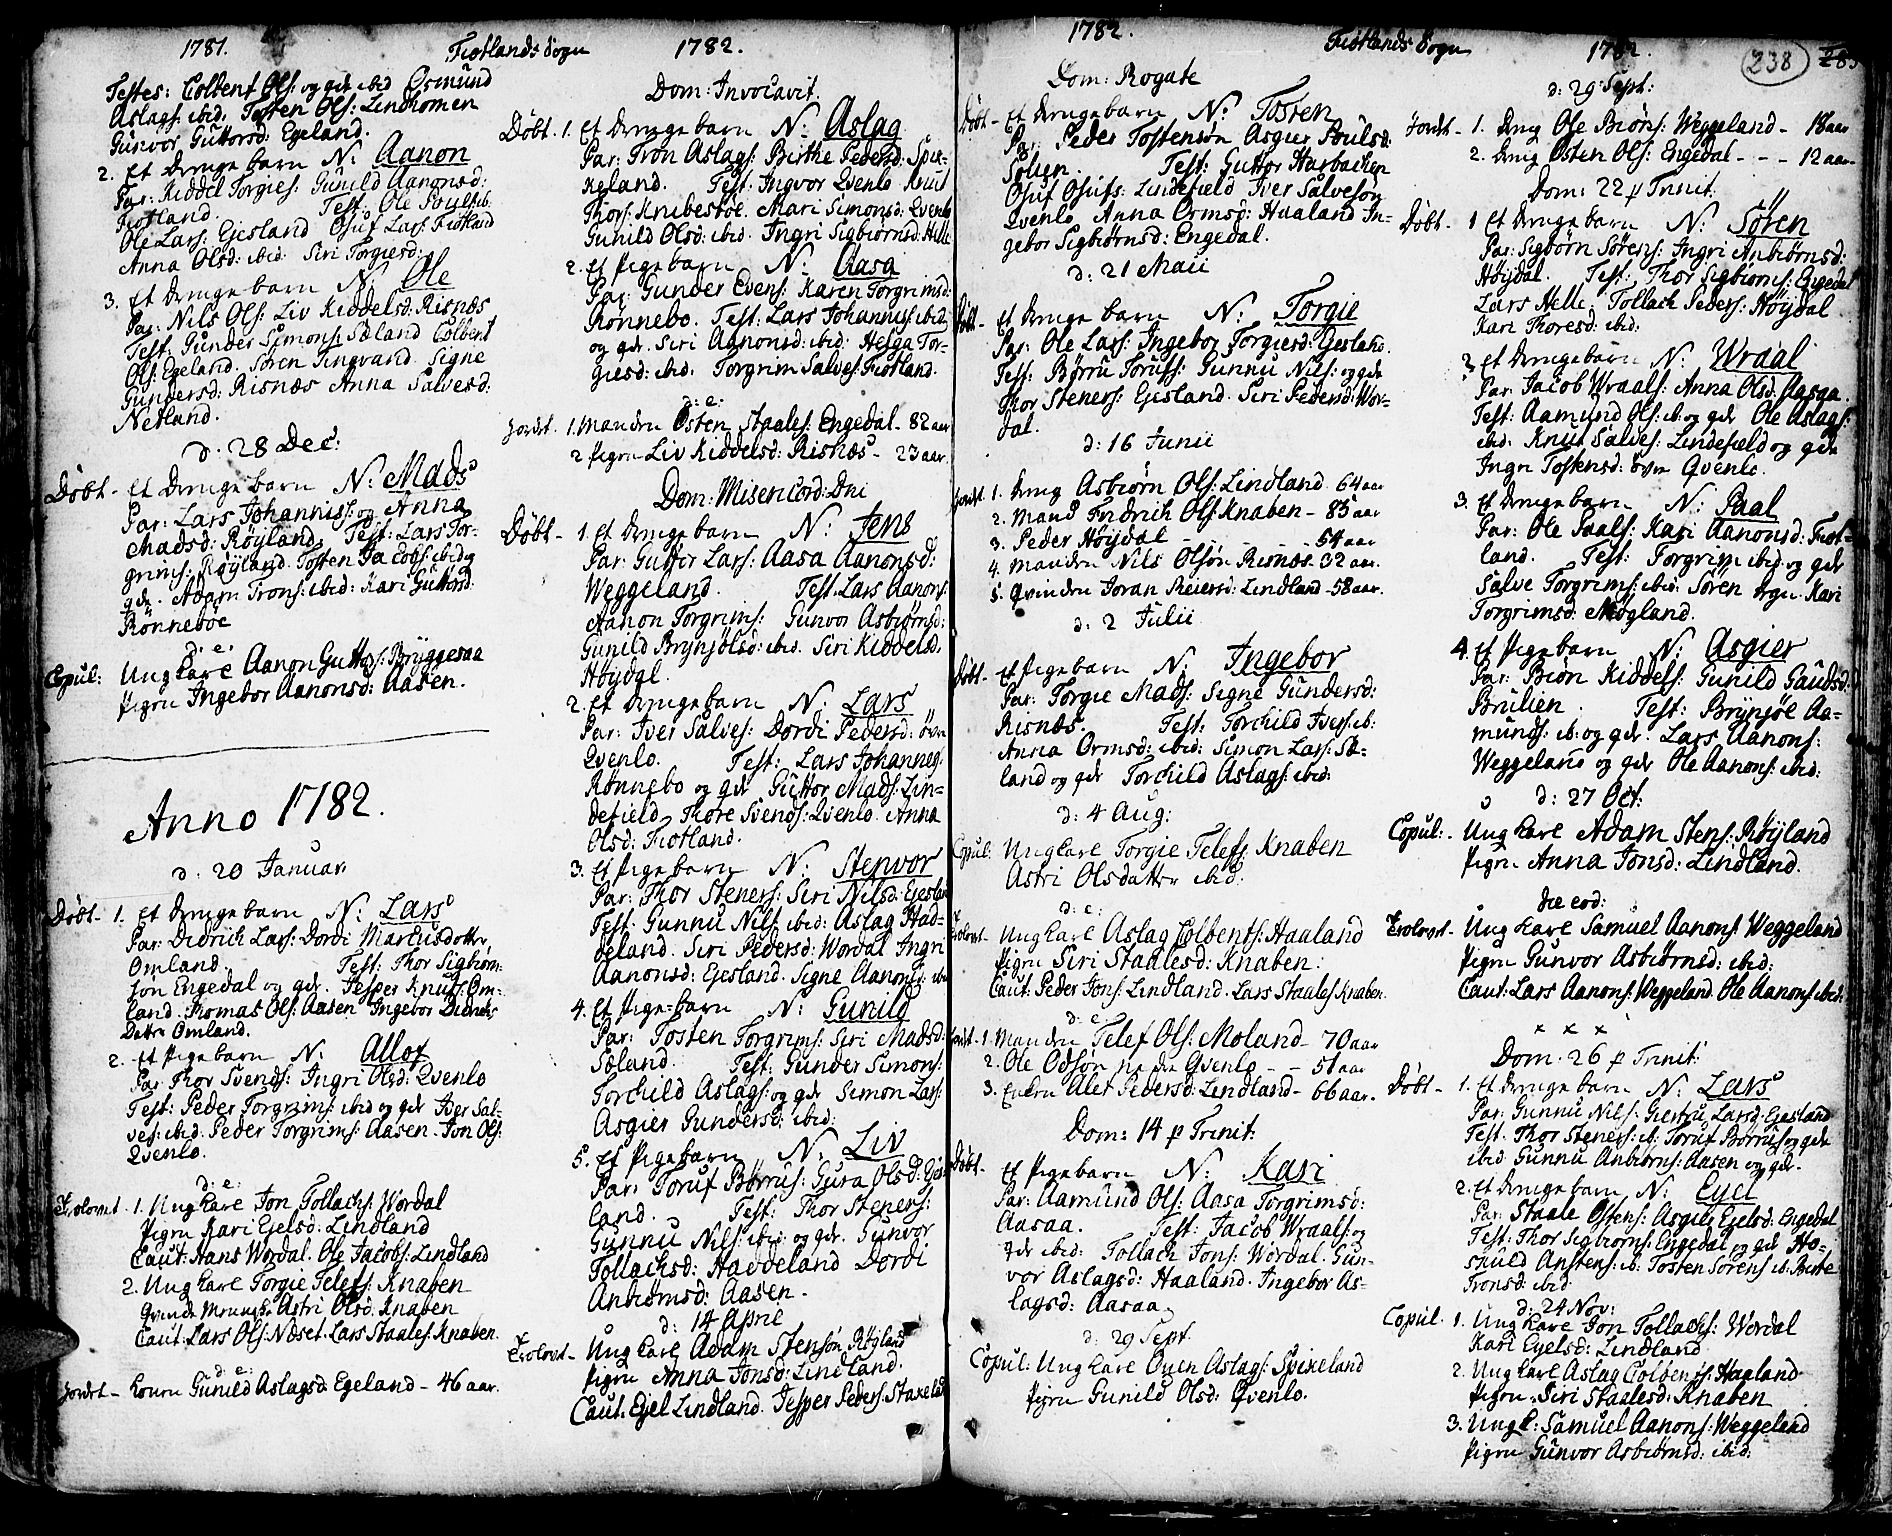 1781. Fiotlands Sogn
Testes: Colbent Ols: og gdr ibid Osmund
Aslags: ibid. Tosten Ols: Lindhomen
Gunvor Guttorsd: Egeland.
2. Et drenge barn N: Aanon
Par: Kiddel Torgies: Gunild Aanonsd:
Fiotland. Test: Ole
Ole Lars: Ejesland Osuf Lars: Fiotland
Anna Olsd: ibid. Siri Torgiesd:
3. Et drenge barn N: Ole
Par: Nils Ols: Liv Kiddelsd: Risnæs
Test: Gunder Simons: Sæland Colbent
Ols: Egeland. Søren Tingvand. Signe
Gundersd: Risnæs Anna Salvesd:
Netland.
d: 28 Dec:
Døbt - Et drenge barn N: Mads
Par: Lars Johannis: og Anna
Madsd: Røyland. Test: Lars Tor-
grims: Røyland. Tosten Jacobs: ibid og
gdr. Adam Trons: ibid: Kari Guttorsd:
Rønneboe
d: e:
Copul: Ungkarl Aanon Guttors: Bryggesaa
Pigen Ingebor Aanonsd: Aasen.
Anno 1782.
d: 20 Januar
Døbt - 1. Et drenge barn N: Lars
Par: Didrich Lars: Dordi Marcusdotter
Omland. Test: Thor Sigbiørn-
søn Engedal og gdr. Jesper Knuts: Om-
land. Thomas Ols: Aasen Ingebor Didrichs
Datter Omland.
2. Et Pige barn N: Allof
Par: Thor Svends: Ingri Olsd: Qvenlo
Test: Peder Torgrims: ibid og gdr Iver Sal-
ves: ibid. Peder Torgrims: Aasen. Jon Ols:
Qvenlo.
d: e:
Trolovet - 1. Ungkarl Jon Tollachs: Wordal
Pigen Kari Ejelsd: Lindland
Caut: Hans Wordal. Ole Jacobs: Lindland
2. Ungkarl Torgie Telefs: Knaben
Astri Olsd: Knaben
Caut: Lars Ols: Næset. Lars Staales: Knaben.
d: e:
Jordet - Konen Gunild Aslagsd: Egeland - 46 aar.
1782.
Dom: Invocavit.
Døbt. 1. Et drenge barn N: Aslag
Par: Tron Aslags: Birthe Pedersd: Spix-
keland. Test: Ingvor Qvenlo Knut
Thors: Knibestøl. Mari Simonsd: Qvenlo
Gunild Olsd: ibid. Ingri Sigbiørnsd: Helle
2. Et Pige barn N: Aasa
Par: Gunder Evens: Karen Torgrimsd:
Rønnebo. Test: Lars Johannis: ibid
og gdr. Siri Aanonsd: ibid: Helga Tor-
giesd: ibid. Torgrim Salves: Fiotland.
d: e:
Jordet. 1. Manden Osten Staales: Engedal - 82 aar
2 Pigen Liv Kiddelsd: Risnæs - 23 aar.
Dom: Misericord: Dni
Døbt - 1. Et drenge barn N: Jens
Par: Guttor Lars: Aasa Aanonsd:
Weggeland. Test: Lars Aanons:
Aanon Torgrims: Gunvor Asbiørnsd:
Gunild Brynjølsd: ibid. Siri Kiddelsd:
Høydal.
2. Et drenge barn N: Lars
Par: Iver Salves: Dordi Pedersd: øvre
Qvenlo. Test: Lars Johannes:
Rønnebo og gdr Guttor Mads: Lin-
defield. Thore Svends: Qvenlo. Anna
Olsd: Fiotland.
3. Et Pige barn N: Stenvor
Par: Thor Steners: Siri Nilsd: Ejesland
Test: Gunnu Nils: ibid: Aslag Had-
deland. Siri Pedersd: Wordal Ingri
Aanonsd: Ejesland. Signe Aanonsd: ibid
4. Et Pige-barn N: Gunild
Par: Tosten Torgrims: Siri Madsd:
Sæland. Test: Gunder Simons:
Torchild Aslags: og gdr Simon Lars:
Asgier Gundersd: ibid:
5. Et Pige barn N: Liv
Par: Toruf Børrus: Gura Olsd: Ejes-
land. Test: Thor Steners:
Gunnu Nils: ibid: og gdr. Gunvor
Tollachsd: Haddeland Dordi
Anbiørnsd: Aasen.
d: 14 April
Trolovet - Ungkarl Adam Stensøn Røyland
Pigen Anna Jonsd: Lindland.
Caut: Ejel Lindland. Jesper Peders: Staxeland
1782. Fiotlands Sogn
Dom: Rogate
Døbt - Et drenge barn N: Tosten
Par: Peder Tostensøn Asgier Poulsd:
Solien. Test: Guttor Harbachen
Osuf Osufs: Lindefield Iver Salvesøn
Qvenlo. Anna Ormsd: Haaland In-
gebor Sigbiørnsd: Engedal.
d: 21 Maii
Døbt - Et drenge barn N: Torgie
Par: Ole Lars: Ingebor Torgiesd: Ejesland.
Test: Børru Torufs: Gunnu Nils: og gdr
Thor Steners: Ejesland. Siri Pedersd: Wor-
dal.
d: 16 Junii
Jordet 1. Dreng Asbiørn Ols: Lindland. 64 aar
2. Mand Indrich Ols: Knaben - 85 aar
3. Peder Høydal - - - 54 aar
4. Manden Nils Olsøn Risnæs. 32 aar.
5. Qvinden Joran Reiersd: Lindland - 58 aar.
d: 2 Julii
Døbt - Et Pige barn N: Ingebor
Par: Torgie Mads: Signe Gundersd:
Risnæs. Test: Torchild Ivers: ib:
Anna Ormsd: ibid: Simon Lars: Sæ-
land og gdr Torchild Aslags: ibid:
d: 4 Aug:
Copul: Ungkarl Torgie Telefs: Knaben
Astri Olsdatter ibid:
d: e:
Trolovet - Ungkarl Aslag Colbents: Haaland
Pigen Siri Staalesd: Knaben:
Caut: Peder Jons: Lindland. Lars Staales: Knaben.
d: e:
Jordet - 1. Manden Telef Ols: Moland - 70 aar
2. Ole Odsøn Qvenlo - - 51 aar
3. Alet Pedersd: Lindland - 66 aar.
Dom: 14 p Trinit:
Døbt - Et Pige barn N: Kari
Par: Aamund Ols: Aasa Torgrimsd:
Aasaa. Test: Jacob Wraals: og
gdr ibid: Tollach Jons: Wordal. Gun-
vor Aslagsd: Haaland. Ingebor As-
lagsd: Aasaa.
d: 29 Sept.
Copul: Ungkarl Oven Aslags: Spixeland
Pigen Gunild Olsd: Qvenlo.
1782. 238
d: 29 Sept:
Jordet - 1. Dreng Ole Biørs: Weggeland - 18 aar
2. Dreng Osten Ols: Engedal - - - 12 aar
Dom: 22 p Trinit:
Døbt. 1 Et drenge barn N: Søren
Par: Sigbiørn Sørens: Ingri Anbiørnsd:
Høydal. Test: Thor Sigbiørns: Engedal
Lars Helle. Tollach Peders: Høydal.
Kari Thoresd: ibid:
2 Et drenge barn N: Wraal
Par: Jacob Wraals: Anna Olsd: Aasaa.
Test: Aamund Ols: ib: og gdr Ole Aslags:
ibid: Knut Salves: Lindefield og gdr
Ingri Tostensd: øvre Qvenlo.
3. Et drenge barn N: Paal
Par: Ole Paals: Kari Aanonsd: Fiot-
land. Test: Torgrim ibid: og gdr
Salve Torgrims: ibid: Søren Kari
Torgrimsd: Mogland.
4. Et Pige barn N: Asgier
Par: Biørn Kiddels: Gunild Gaudsd:
Brulien. Test: Brynjøl Aa-
munds: ib: og gdr. Lars Aanons:
Weggeland og gdr Ole Aanons: ibid:
d: 27 Oct:
Copul: - Ungkarl Adam Stens: Røyland
Pigen Anna Jonsd: Lindland.
Die eod:
Trolovet - Ungkarl Samuel Aanons: Weggeland
Pigen Gunvor Asbiørnsd: ibid:
Caut: Lars Aanons: Weggeland Ole Aanons: ibid:
x x x
Dom. 26 p Trinit:
Døbt - 1. Et drenge barn N: Lars
Par: Gunnu Nils: Giertru Larsd: Ejesland
Test. Thor Steners: ib: Toruf Børrus: og gdr
ibid Gunnu Anbiørns: Aasen og gdr.
2. Et drenge barn N: Ejel
Par: Staale Ostens: Asgier Ejelsd: Engedal
Test: Thor Sigbiørns: Engedal og gdr Ho-
skuld Anstens: ib: Tosten Sørens: ib: Birthe
Tronsd: ibid
d: 24 Nov:
Copul. 1. Ungkarl Jon Tollachs: Wordal
Kari Ejelsd: Lindland
2. Ungkarl Aslag Colbents: Haaland
Pigen Siri Staalesd: Knaben
3. Ungk: Samuel Aanons: Weggeland
Pigen Gunvor Asbiørnsd: ibid: